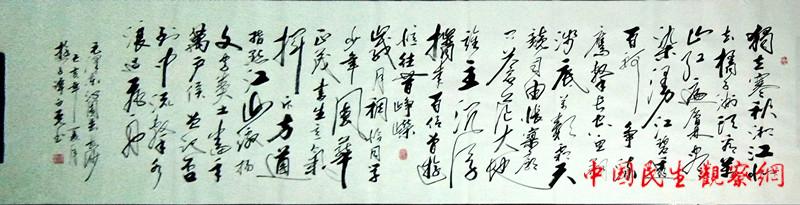 独立寒秋湘江北
去橘子洲头看万
山红遍层林尽
染漫江碧透
百舸争流
鹰击长空鱼翔
浅底万类霜天
竞自由怅寥廓
问苍茫大地
谁主沉浮
携来百侣曾游
忆往昔峥嵘
岁月稠恰同学
少年风华
正茂书生意气
挥斥方遒
指点江山激扬
文字粪土当年
万户侯曾记否
到中流击水
浪遏飞舟
毛泽东沁园春长沙
中國民生觀察網